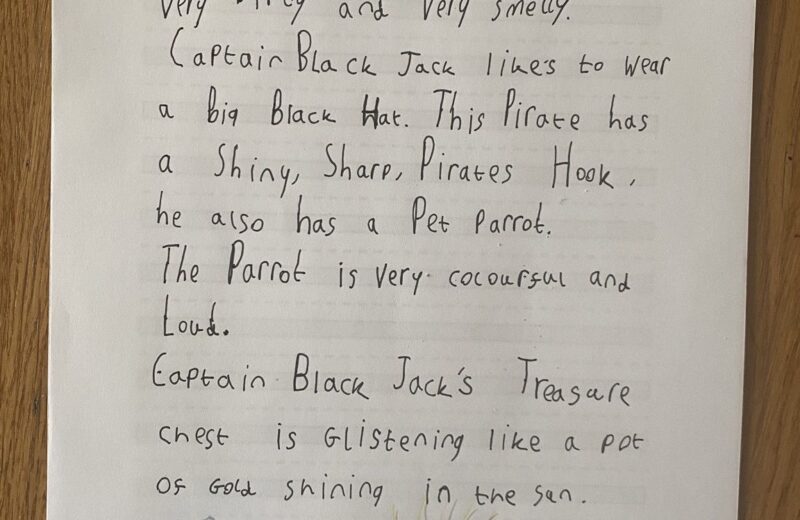 very and very smelly.
Captain Black Jack likes to wear
a big Black Hat. This Pirate has
a Shiny, Sharp, Pirates Hook,
he also has a Pet Parrot.
The Parrot is very colourful and
Loud.
Captain Black Jack's Treasure
chest is Glistening like a pot
of Gold shining in the sun.